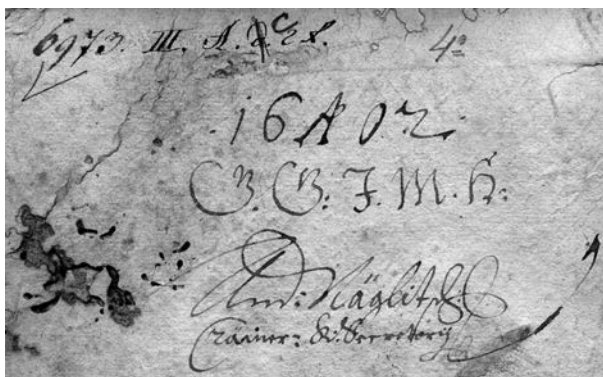 6973. III. A. 4º
16 A 02
G. G. J. M. H:
And: Näglitsch
Crainer: Secretary